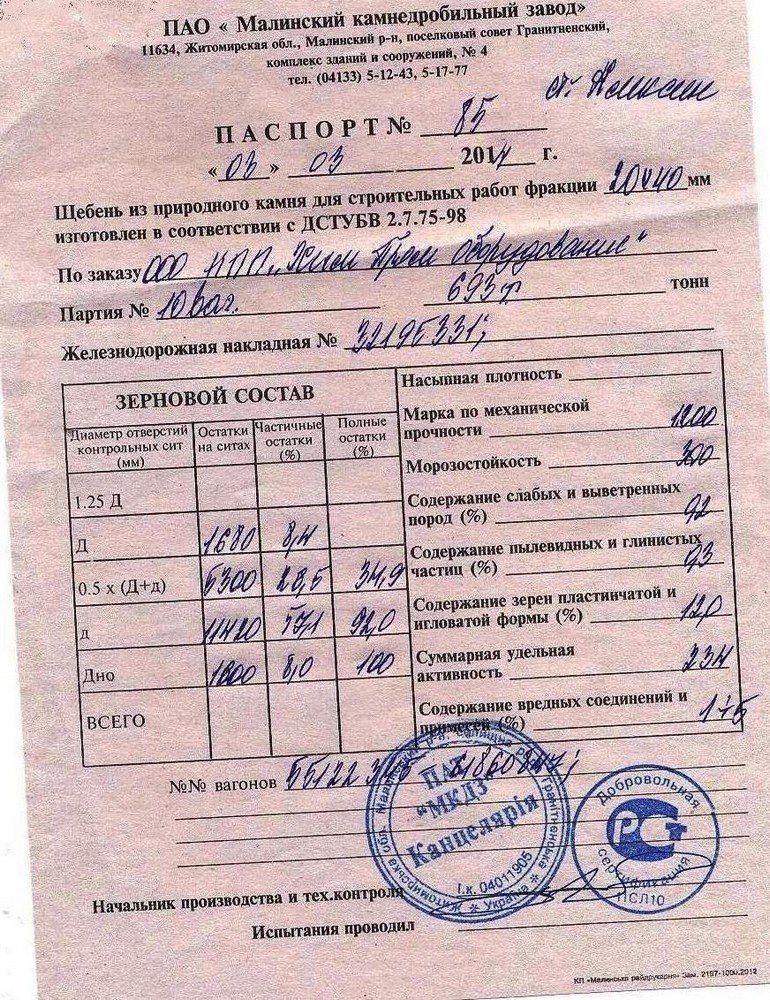 ПАО « Малинский камнедробильный завод»
11634, Житомирская обл., Малинский р-н, поселковый совет Гранитненский,
комплекс зданий и сооружений, № 4
тел. (04133) 5-12-43, 5-17-77
ст.
ПАСПОРТ № 85
« 03 » 03 2014 г.
Щебень из природного камня для строительных работ фракции 20х40 мм
изготовлен в соответствии с ДСТУБВ 2.7.75-98
По заказу ООО НПП „Хим Пром Оборудование"
Партия № 10 ваг. 693т тонн
Железнодорожная накладная № 32195331;
ЗЕРНОВОЙ СОСТАВ
Диаметр отверстий контрольных сит (мм) Остатки на ситах Частичные остатки (%) Полные остатки (%)
1.25 Д
Д 1680 8,4
0.5 х (Д+д) 5300 26,5 34,9
д 11420 57,1 92,0
Дно 1600 8,0 100
ВСЕГО
Насыпная плотность
Марка по механической
прочности 1200
Морозостойкость 300
Содержание слабых и выветренных
пород (%) 0,2
Содержание пылевидных и глинистых
частиц (%) 0,3
Содержание зерен пластинчатой и
игловатой формы (%) 12,0
Суммарная удельная
активность 234
Содержание вредных соединений и
примесей (%)
№№ вагонов
ПАТ
"МКДЗ"
Канцелярія
І.к. 04011905
Житомирська обл. Малинський р-н, селищна рада Гранітненська
Україна
Добровольная
РСТ
сертификация
ПСЛ10
Начальник производства и тех.контроля
Испытания проводил
КП «Малинська райдрукарня» Зам. 2197-1000.2012